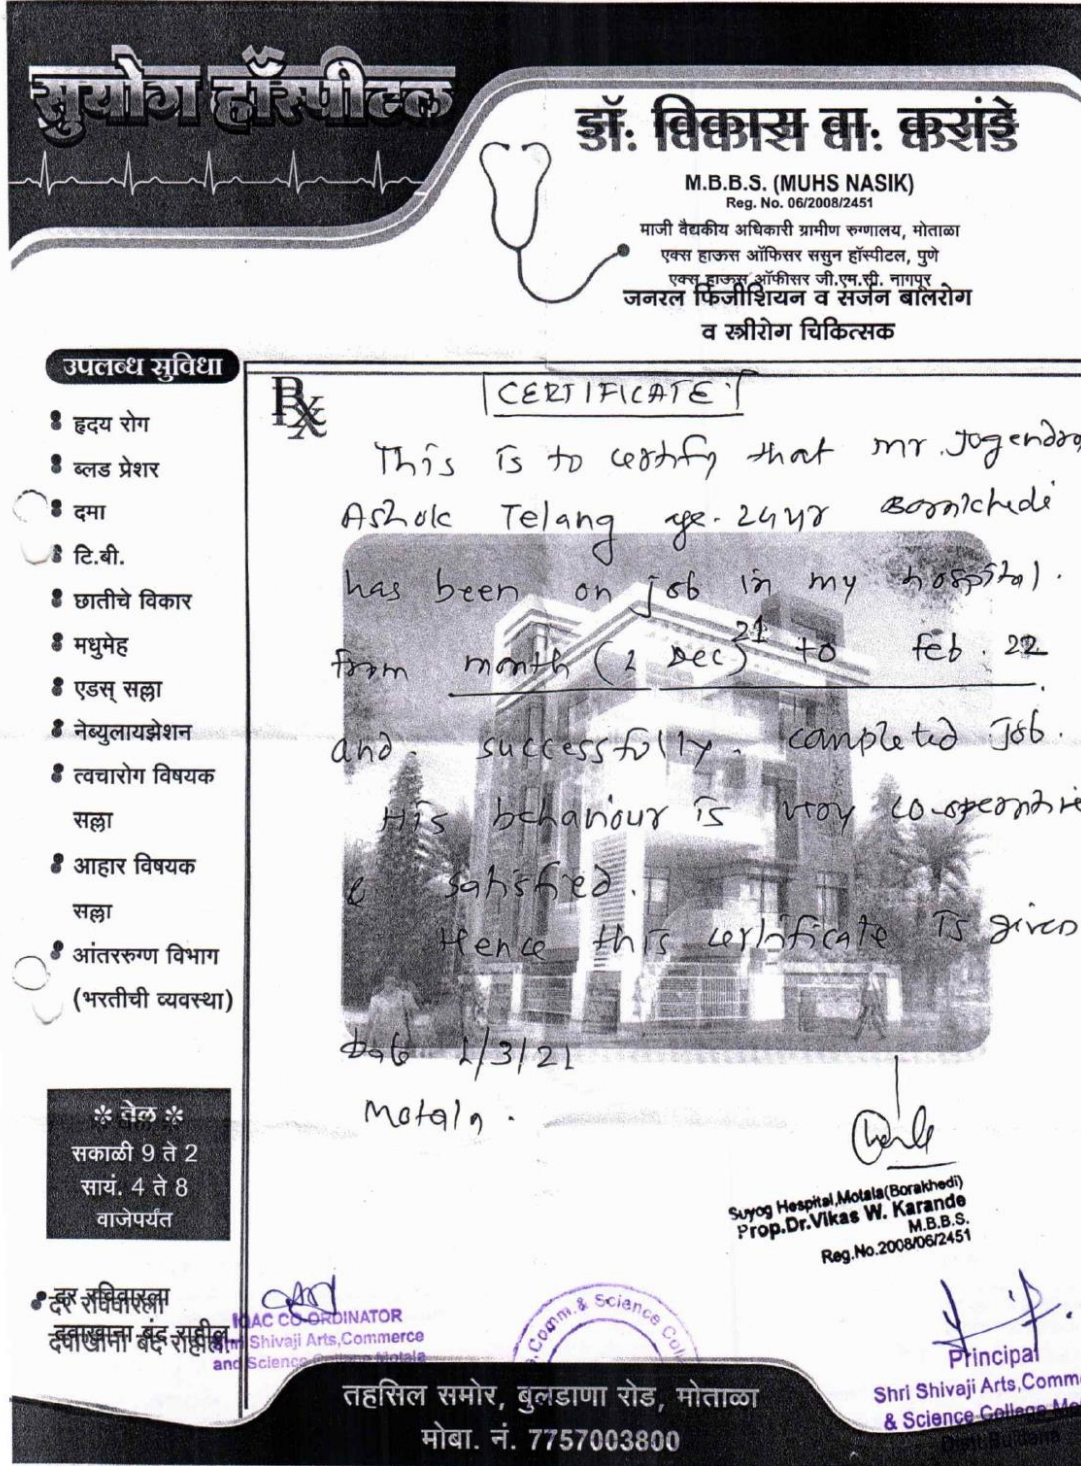 सुयोग हॉस्पीटल
डॉ. विकास वा. करांडे
M.B.B.S. (MUHS NASIK)
Reg. No. 06/2008/2451
माजी वैद्यकीय अधिकारी ग्रामीण रुग्णालय, मोताळा
एक्स हाऊस ऑफिसर ससुन हॉस्पीटल, पुणे
एक्स हाऊस ऑफीसर जी.एम.सी. नागपूर
जनरल फिजीशियन व सर्जन बालरोग
व स्त्रीरोग चिकित्सक
उपलब्ध सुविधा
हृदय रोग
ब्लड प्रेशर
दमा
टि.बी.
छातीचे विकार
मधुमेह
एडस् सल्ला
नेब्युलायझेशन
त्वचारोग विषयक
सल्ला
आहार विषयक
सल्ला
आंतररुग्ण विभाग
(भरतीची व्यवस्था)
* वेल *
सकाळी 9 ते 2
सायं. 4 ते 8
वाजेपर्यंत
दर रविवारला
दवाखाना बंद राहील.
Rx
CERTIFICATE
This is to certify that Mr. Jogendra
Ashok Telang age. 24 yr
has been on job in my hospital.
from month (1 Dec) 21 to feb. 22
and successfully completed job.
His behaviour is very co-operative
& satisfied.
Hence this certificate is given
Date 1/3/21
Motala.
Suyog Hospital,Motala(Borakhedi)
Prop.Dr.Vikas W. Karande
M.B.B.S.
Reg.No.2008/06/2451
IQAC CO-ORDINATOR
Shri Shivaji Arts,Commerce
and Science College Motala
Comm.& Science
Principal
Shri Shivaji Arts,Comm
& Science College
Dist. Buldana
तहसिल समोर, बुलडाणा रोड, मोताळा
मोबा. नं. 7757003800